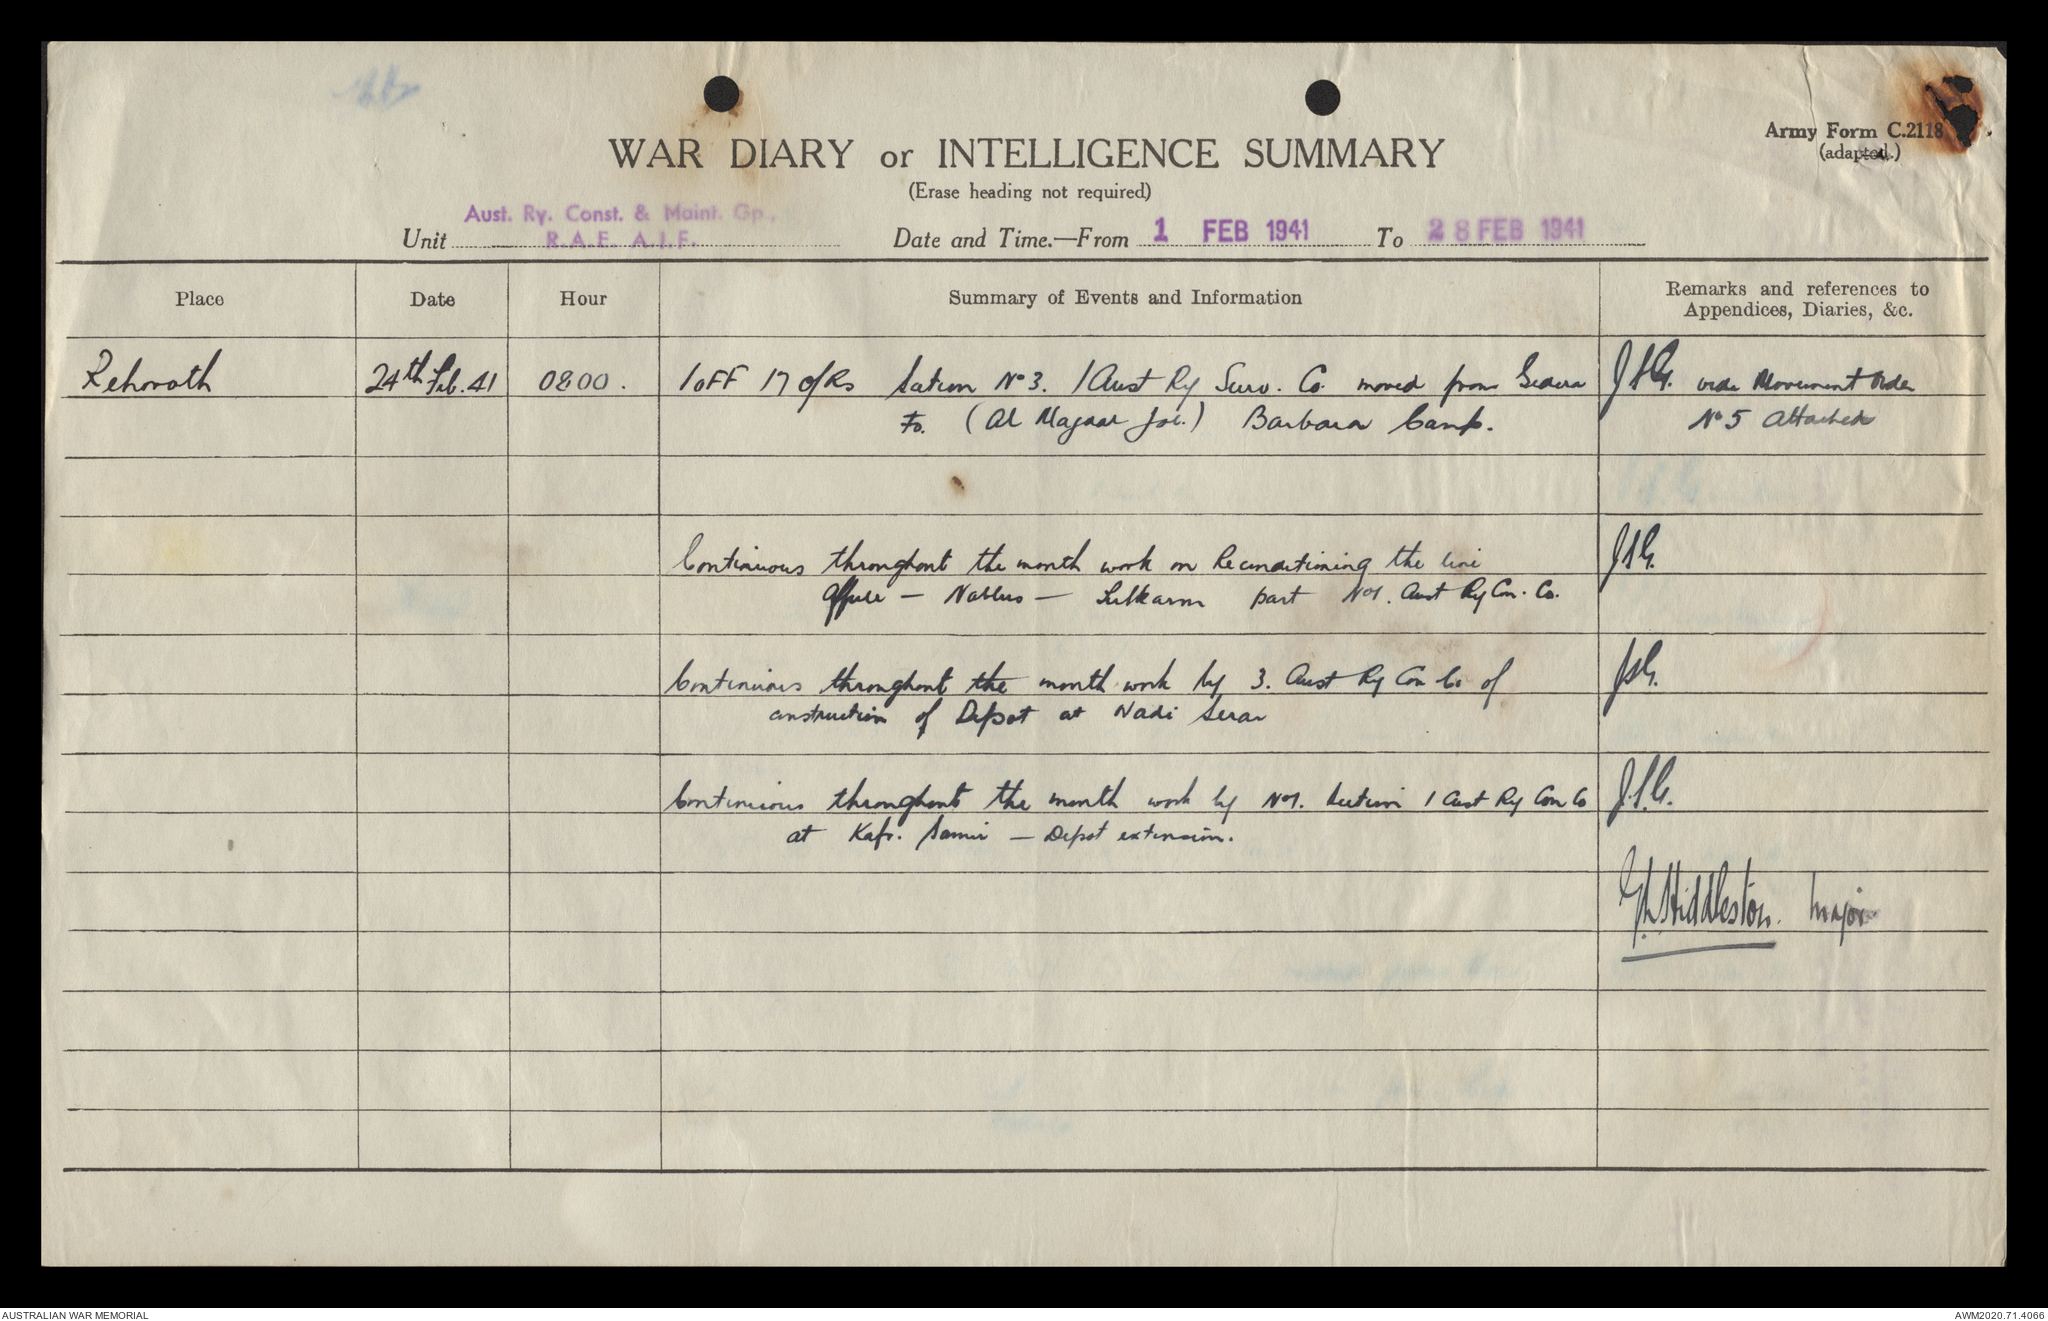 WAR DIARY or INTELLIGENCE SUMMARY
(Erase heading not required)
Army Form C.2118
(adapted.)
Unit Aust. Ry. Const. & Maint. Gp.,
R.A.E. A.I.F.
Date and Time.—From 1 FEB 1941 To 28 FEB 1941
Place Date Hour Summary of Events and Information Remarks and references to
Appendices, Diaries, &c.
Rehovoth 24th Feb. 41 0800. 1 OFF 17 O/Rs Section No 3. 1 Aust Ry Surv. Co. moved from Gedera JSG. vide Movement Order
to. (Al Majdal) Barbara Camp. No 5 Attached
Continuous throughout the month work on Reconditioning the line JSG.
Affule — Nablus — Tulkarm part No 1. Aust Ry Con. Co.
Continuous throughout the month work by 3. Aust Ry Con Co of JSG.
construction of Depot at Wadi Serar
Continuous throughout the month work by No 1. Section 1 Aust Ry Con Co J.S.G.
at Kafr. Samir — Depot extension.
Hiddleston. Major
AUSTRALIAN WAR MEMORIAL
AWM2020.71.4066